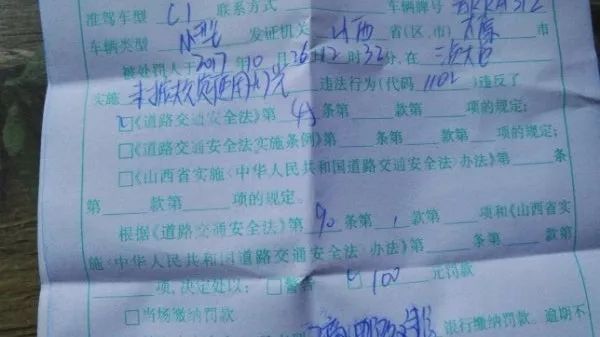 准驾车型 C1 联系方式 车辆牌号
车辆类型 小型 发证机关 山西 省(区、市) 太原 市
被处罚人于2017年10月26日12时32分,在
实施 未按规定使用灯光 违法行为(代码 1102)违反了
☑《道路交通安全法》第 条第 款第 项的规定;
□《道路交通安全法实施条例》第 条第 款第 项的规定;
□《山西省实施〈中华人民共和国道路交通安全法〉办法》第 条
第 款第 项的规定。
根据《道路交通安全法》第 90 条第 1 款第 项和《山西省实
施〈中华人民共和国道路交通安全法〉办法》第 条第 款
项,决定处以:□警告 ☑ 100 元罚款
□当场缴纳罚款
银行缴纳罚款。逾期不